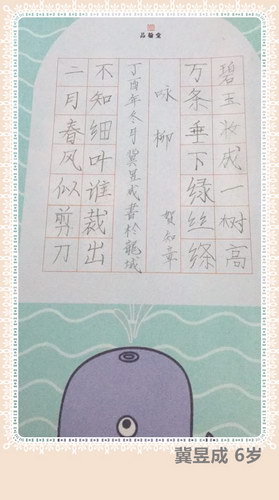 品翰堂
碧玉妆成一树高
万条垂下绿丝绦
咏柳
贺知章
丁酉年冬月冀昱成書於龍城
不知细叶谁裁出
二月春风似剪刀
冀昱成 6岁